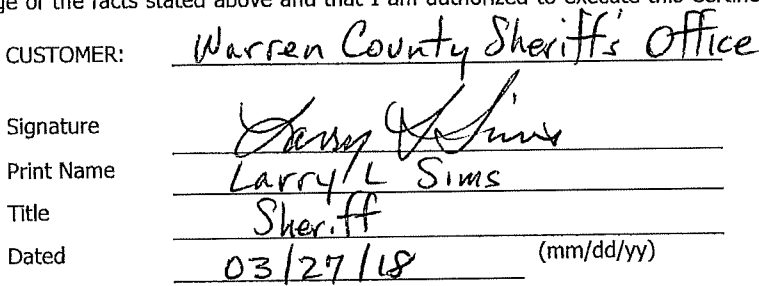 ge of the facts stated above and that I am authorized to execute this Certific
CUSTOMER: Warren County Sheriff's Office
Signature Larry L Sims
Print Name Larry L Sims
Title Sheriff
Dated 03/27/18 (mm/dd/yy)